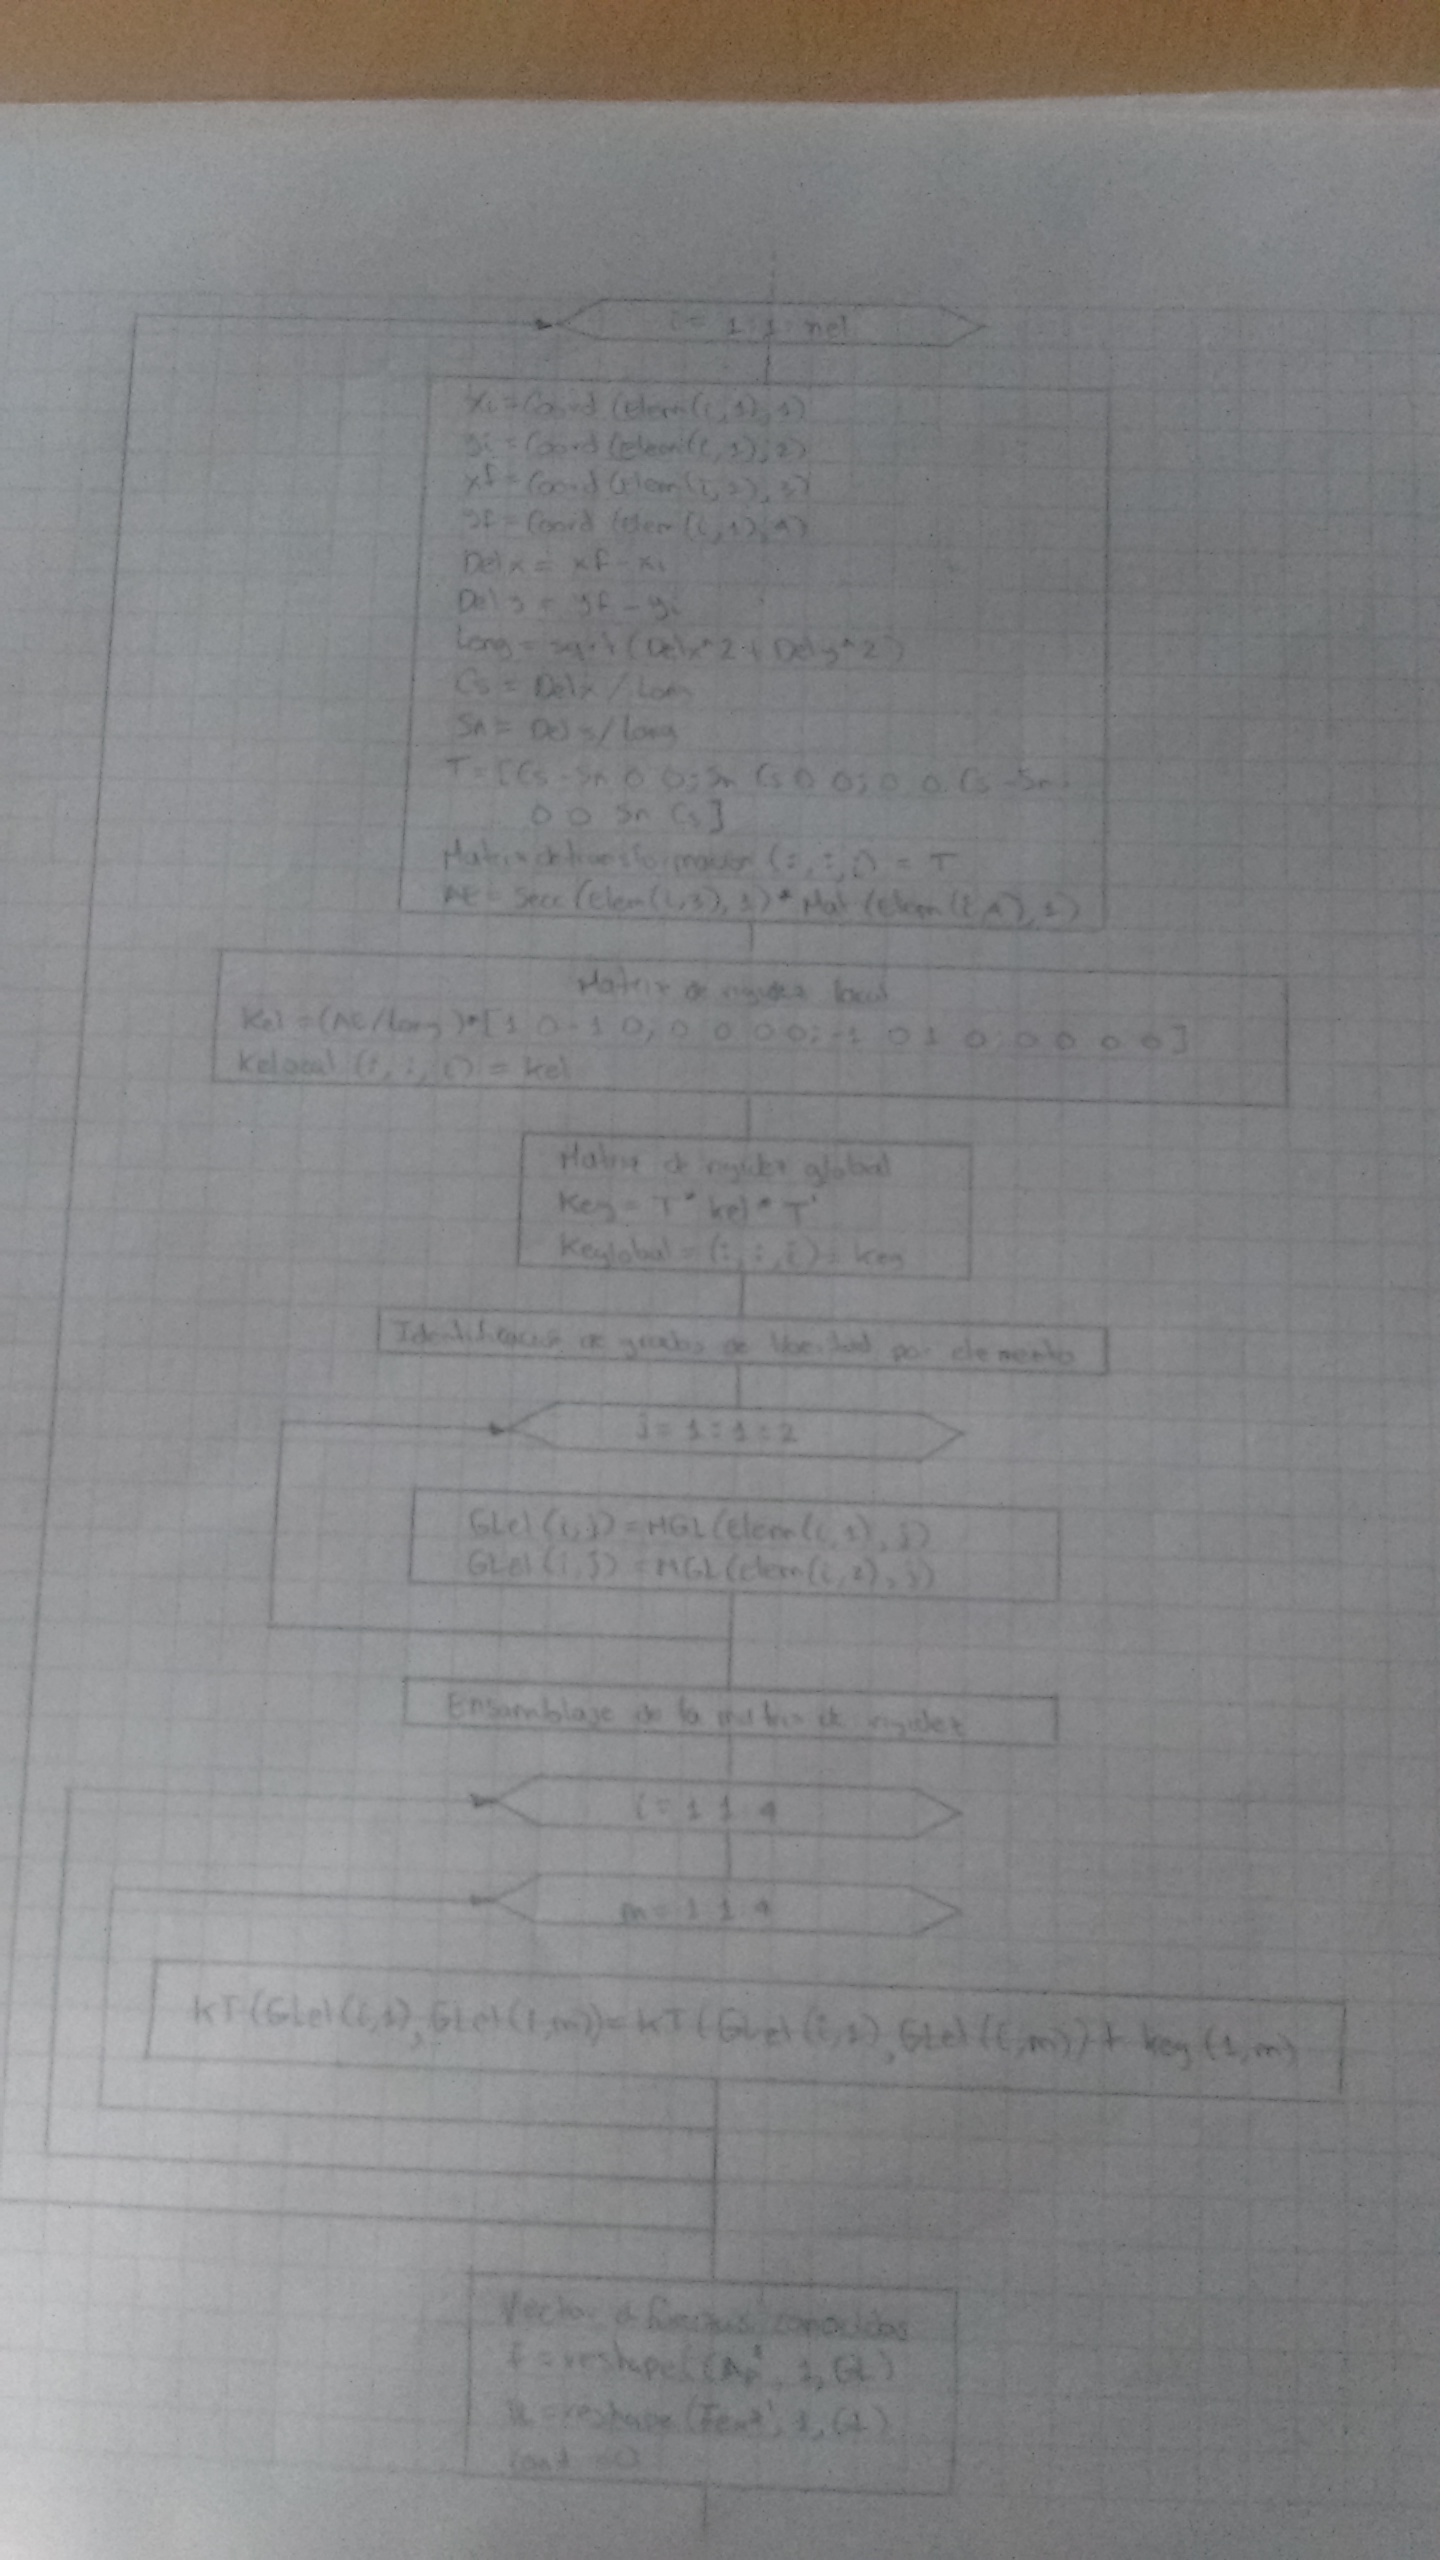 i = 1:1: nel
xi = Coord (Elem(i,1),1)
yi = Coord (Elem(i,1),2)
xf = Coord (Elem(i,2),3)
yf = Coord (Elem(i,1),4)
Delx = xf - xi
Dely = yf - yi
Long = sqrt (Delx^2 + Dely^2)
Cs = Delx / Long
Sn = Dely / Long
T = [Cs -Sn 0 0; Sn Cs 0 0; 0 0 Cs -Sn;
0 0 Sn Cs]
Matriz de transformacion (:,:,i) = T
AE = Secc (Elem(i,3),1) * Mat (Elem(i,4),1)
Matriz de rigidez local
Kel = (AE/Long) * [1 0 -1 0; 0 0 0 0; -1 0 1 0; 0 0 0 0]
Kelocal (:,:,i) = kel
Matriz de rigidez global
Keg = T * kel * T'
Keglobal = (:,:,i) = keg
Identificacion de grados de libertad por elemento
j = 1:1:2
GLel (i,j) = MGL (elem(i,1),j)
GLel (i,j) = MGL (elem(i,2),j)
Ensamblaje de la matriz de rigidez
i = 1 1 4
m = 1 1 4
KT (GLel(i,1), GLel(i,m)) = KT (GLel(i,1), GLel(i,m)) + keg (1,m)
Vector de fuerzas conocidas
f = reshape ((Ap', 1, GL)
= reshape (Fext', 1, GL)
cont = 0